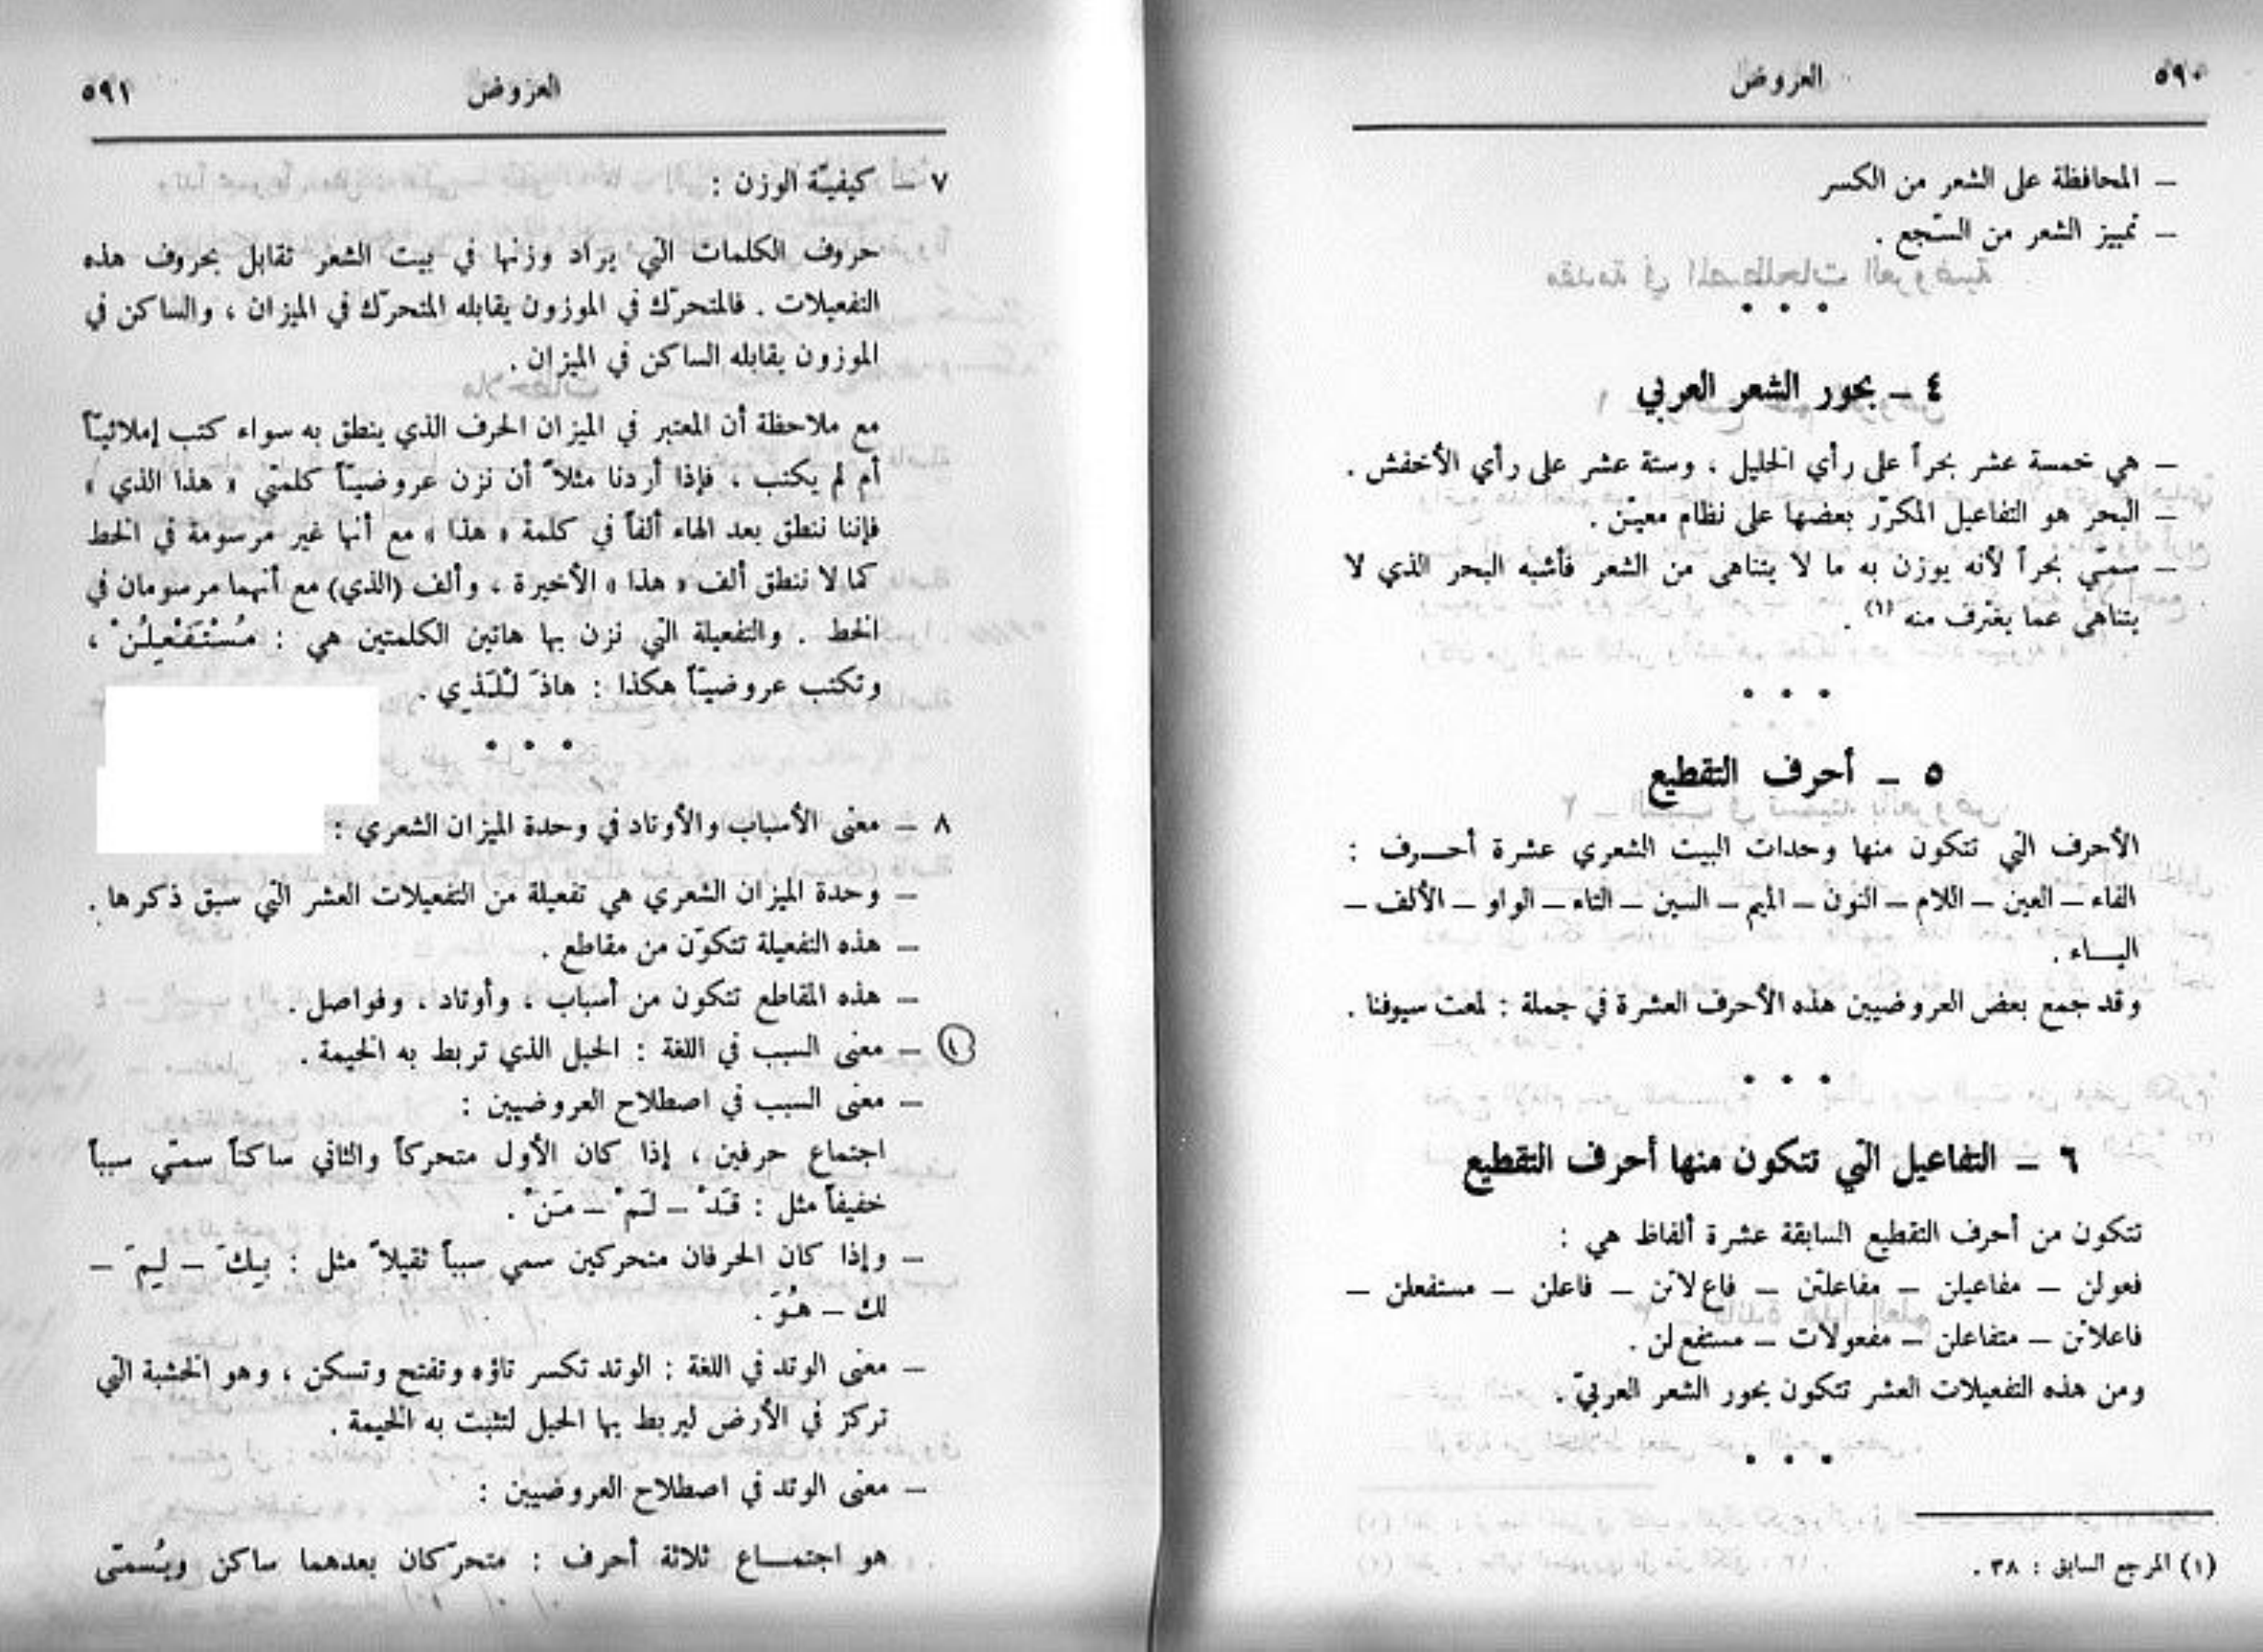 ٥٩٠ العروض
– المحافظة على الشعر من الكسر
– تمييز الشعر من السّجع .
• • •
٤ – بحور الشعر العربي
– هي خمسة عشر بحراً على رأي الخليل ، وستة عشر على رأي الأخفش .
– البحر هو التفاعيل المكرّر بعضها على نظام معيّن .
– سمّي بحراً لأنه يوزن به ما لا يتناهى من الشعر فأشبه البحر الذي لا
يتناهى عما يغترف منه (١) .
• • •
٥ – أحرف التقطيع
الأحرف التي تتكون منها وحدات البيت الشعري عشرة أحــرف :
الفاء – العين – اللام – النون – الميم – السين – التاء – الواو – الألف –
اليــاء .
وقد جمع بعض العروضيين هذه الأحرف العشرة في جملة : لمعت سيوفنا .
• • •
٦ – التفاعيل التي تتكون منها أحرف التقطيع
تتكون من أحرف التقطيع السابقة عشرة ألفاظ هي :
فعولن – مفاعيلن – مفاعلتن – فاع لاتن – فاعلن – مستفعلن –
فاعلاتن – متفاعلن – مفعولات – مستفع لن .
ومن هذه التفعيلات العشر تتكون بحور الشعر العربيّ .
• • •
(١) المرجع السابق : ٣٨ .
العروض ٥٩١
٧ – كيفيّة الوزن :
حروف الكلمات التي يراد وزنها في بيت الشعر تقابل بحروف هذه
التفعيلات . فالمتحرّك في الموزون يقابله المتحرّك في الميزان ، والساكن في
الموزون يقابله الساكن في الميزان .
مع ملاحظة أن المعتبر في الميزان الحرف الذي ينطق به سواء كتب إملائيّاً
أم لم يكتب ، فإذا أردنا مثلاً أن نزن عروضيّاً كلمتي « هذا الذي »
فإننا ننطق بعد الهاء ألفاً في كلمة « هذا » مع أنها غير مرسومة في الخط
كما لا ننطق ألف « هذا » الأخيرة ، وألف (الذي) مع أنهما مرسومان في
الخط . والتفعيلة التي نزن بها هاتين الكلمتين هي : مُسْتَفْعِلُنْ ،
وتكتب عروضيّاً هكذا : هاذَ لْلَذي .
• • •
٨ – معنى الأسباب والأوتاد في وحدة الميزان الشعري :
– وحدة الميزان الشعري هي تفعيلة من التفعيلات العشر التي سبق ذكرها .
– هذه التفعيلة تتكوّن من مقاطع .
– هذه المقاطع تتكون من أسباب ، وأوتاد ، وفواصل .
١ – معنى السبب في اللغة : الحبل الذي تربط به الخيمة .
– معنى السبب في اصطلاح العروضيين :
اجتماع حرفين ، إذا كان الأول متحركاً والثاني ساكناً سمّي سبباً
خفيفاً مثل : قَدْ – لَمْ – مَنْ .
– وإذا كان الحرفان متحركين سمي سبباً ثقيلاً مثل : بِكَ – لِمَ –
لك – هُوَ .
– معنى الوتد في اللغة : الوتد تكسر تاؤه وتفتح وتسكن ، وهو الخشبة التي
تركز في الأرض ليربط بها الحبل لتثبت به الخيمة .
– معنى الوتد في اصطلاح العروضيين :
هو اجتمــاع ثلاثة أحرف : متحركان بعدهما ساكن ويُسمّى